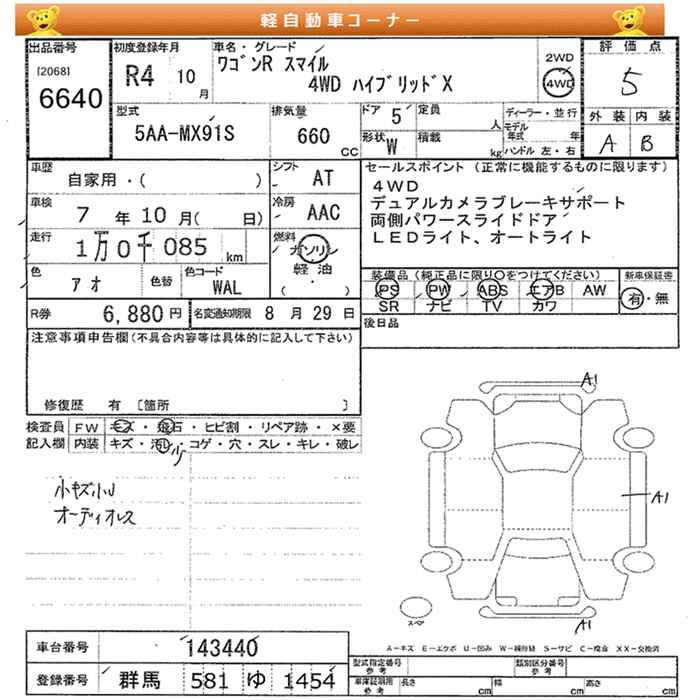 軽自動車コーナー
出品番号 初度登録年月 車名・グレード 2WD 評価点
[2068] R4 10月 ワゴンR スマイル 4WD
6640 4WD ハイブリッドX 5
型式 排気量 ドア 5 定員 人 ディーラー・並行 外装 内装
5AA-MX91S 660 CC 形状 W 積載 kg モデル年式 年 A B
ハンドル 左・右
車歴 シフト セールスポイント (正常に機能するものに限ります)
自家用・( ) AT 4WD
車検 冷房 デュアルカメラブレーキサポート
7 年 10 月( 日) AAC 両側パワースライドドア
走行 燃料 LEDライト、オートライト
1万0千085 km ガソリン
軽油
(・)
色 色替 色コード 装備品 (純正品に限り○をつけてください) 新車保証書
アオ WAL PS PW ABS エアB AW 有・無
SR ナビ TV カワ
R券 6,880円 名変通知期限 8月29日 後日品
注意事項申告欄(不具合内容等は具体的に記入して下さい)
修復歴 有 [箇所 ]
検査員 FW キズ・飛石・ヒビ割・リペア跡・×要
記入欄 内装 キズ・汚れ・コゲ・穴・スレ・キレ・破レ
小キズ小U
オーディオレス
A1
A1
A1
スペア
A=キズ E=エクボ U=凹み W=補修跡 S=サビ C=腐食 XX=交換済
車台番号 143440 型式指定番号 参考 類別区分番号 参考
登録番号 群馬 581 ゆ 1454 車庫証明用 参考 長さ cm 幅 cm 高さ cm